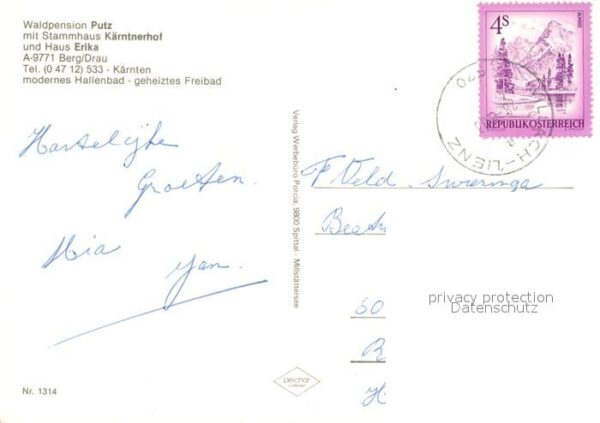 Waldpension Putz
mit Stammhaus Kärntnerhof
und Haus Erika
A-9771 Berg/Drau
Tel. (0 47 12) 533 - Kärnten
modernes Hallenbad - geheiztes Freibad
4s
ALMSEE
REPUBLIK ÖSTERREICH
VILLACH-LIENZ
Hartelijke
Groeten.
Mia
Jan.
Verlag Werbebüro Porcia, 9800 Spittal - Millstättersee
F. Veld. Swieringa
60
privacy protection
Datenschutz
peichar
Nr. 1314